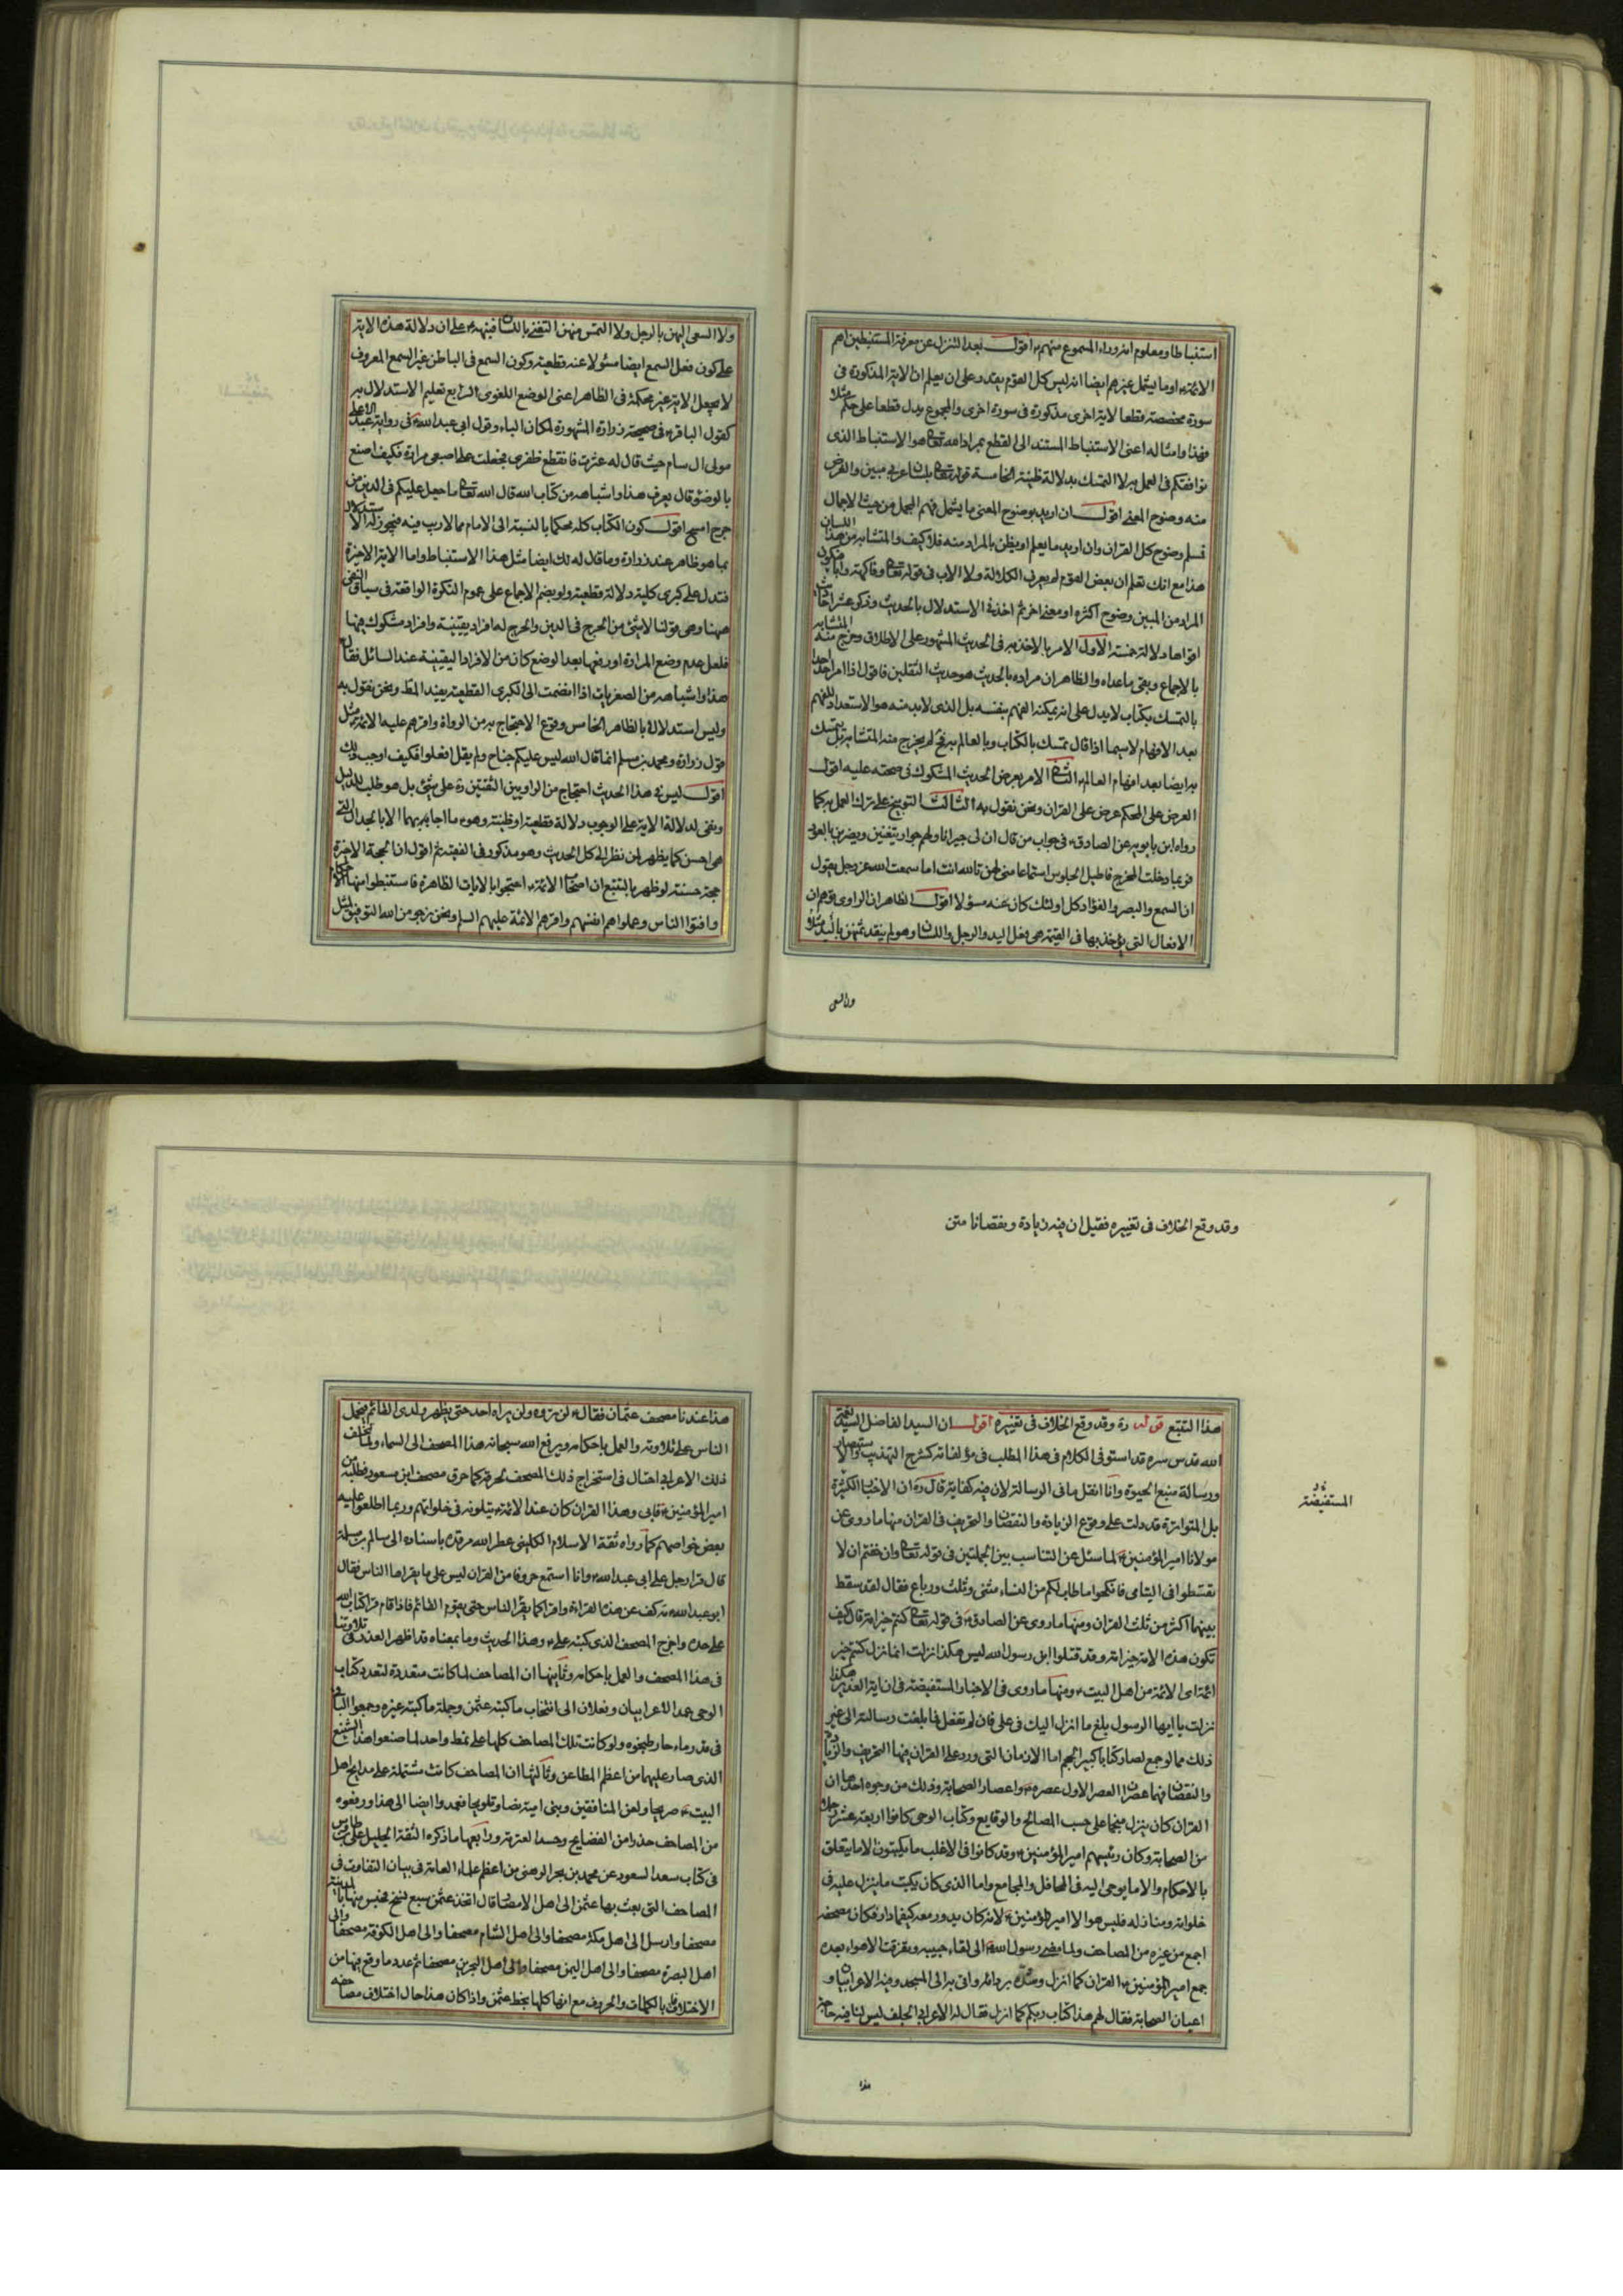 استنباطا ومعلوم انه وراء المسموع منهم ع اقول بعد التنزل عن معرفة المستنبطين اهم
الائمة ع او ما يشمل غيرهم ايضا انه ليس كل القوم يقتدر على ان يعلم ان الاية المذكورة في
سورة مخصصة قطعا لاية اخرى مذكورة في سورة اخرى والمجموع يدل قطعا على حكم مثلا
فهذا وامثاله اعنى الاستنباط المستند الى القطع بمراد الله تعالى هو الاستنباط الذى
نوافقكم في العمل به لا التمسك بدلالة ظنية الخامسة قوله تعالى بلسان عربي مبين والغرض
منه وضوح المعنى اقول ان اريد بوضوح المعنى ما يشمل فهم المجمل من حيث الاجمال
فسلم وضوح كل القران وان اريد ما يعلم او يظن بالمراد منه فلا كيف والمتشابه من هذا اللسان
هذا مع انك تعلم ان بعض القوم لم يعرف الكلالة ولا الاب في قوله تعالى وفاكهة وابا فيكون
المراد من المبين وضوح اكثره او معنى اخر ثم اخذ في الاستدلال بالحديث وذكر عشر
اقواها دلالة خمسة الاول الامر بالاخذ به في الحديث المشهور على الاطلاق وخرج منه المتشابه
بالاجماع وبقى ما عداه والظاهر ان مراده بالحديث هو حديث الثقلين فاقول اذا امر احد احدا
بالتمسك بكتاب لا يدل على انه يمكنه الفهم بنفسه بل الذى لا بد منه هو الاستعداد للفهم
بعد الافهام لا سيما اذا قال تمسك بالكتاب وبالعالم به فح لم يخرج منه المتشابه بل يتمسك
به ايضا بعد افهام العالم ع الثانى الامر بعرض الحديث المشكوك في صحته عليه اقول
العرض على المحكم عرض على القران ونحن نقول به الثالث التوبيخ على ترك العمل به كما
رواه ابن بابويه عن الصادق ع في جواب من قال ان لى جيرانا ولهم جوار يتغنين ويضربن بالعود
فربما دخلت المخرج فاطيل الجلوس استماعا منى لهن تالله انت اما سمعت الله عز وجل يقول
ان السمع والبصر والفؤاد كل اولئك كان عنه مسؤلا اقول الظاهر ان الراوى توهم ان
الافعال التى يؤخذ بها في القيمة هى فعل اليد والرجل واللسان وهو لم ينقد ثمنهن باليد مثلا
ولا السعى
ولا السعى اليهن بالرجل ولا التمس منهن التغنى باللسان فنبهه ع على ان دلالة هذه الاية
على كون فعل السمع ايضا مسئولا عنه قطعية وكون السمع في الباطن غير السمع المعروف
لا يجعل الاية غير محكمة في الظاهر اعنى الوضع اللغوى الرابع تعليم الاستدلال به
كقول الباقر ع في صحيحة زرارة المشهورة لمكان الباء وقول ابى عبد الله ع في رواية عبد الاعلى
مولى ال سام حيث قال له عثرت فانقطع ظفرى فجعلت على اصبعى مرارة فكيف اصنع
بالوضوء قال يعرف هذا واشباهه من كتاب الله قال الله تعالى ما جعل عليكم في الدين من
حرج امسح اقول كون الكتاب كله محكما بالنسبة الى الامام مما لا ريب فيه فيجوز له الاستدلال
بما هو ظاهر عند زرارة وما قال له لك ايضا مثل هذا الاستنباط واما الاية الاخيرة
فتدل على كبرى كلية دلالة قطعية ولو بضم الاجماع على عموم النكرة الواقعة في سياق النفى
ههنا وهى قولنا لا شئ من الحرج في الدين والحرج له افراد يقينية وافراد مشكوك فيها
فلعل عدم وضع المرارة او رفعها بعد الوضع كان من الافراد اليقينية عند السائل فقال ع
هذا واشباهه من الصغريات اذا انضمت الى الكبرى القطعية يفيد المط ونحن نقول به
وليس استدلالا بالظاهر الخامس وقوع الاحتجاج به من الرواة واقرهم عليه الائمة ع مثل
قول زرارة ومحمد بن مسلم انما قال الله ليس عليكم جناح ولم يقل افعلوا فكيف اوجب ذلك
اقول ليس في هذا الحديث احتجاج من الراويين الثقتين ره على شئ بل هو طلب للدليل
ونفى لدلالة الاية على الوجوب دلالة قطعية او ظنية وهو ع ما اجابه بهما الا بالجدال التى
هى احسن كما يظهر لمن نظر الى كل الحديث وهو مذكور في الفقيه ثم اقول ان الحجة الاخيرة
حجة حسنة لو ظهر بالتتبع ان اصحاب الائمة ع احتجوا بالايات الظاهرة فاستنبطوا منها الاحكام
وافتوا الناس وعملوا هم انفسهم واقرهم الائمة عليهم السلم ونحن نرجو من الله التوفيق لمثل
وقد وقع الخلاف في تغييره فقيل ان فيه زيادة ونقصانا متن
هذا التتبع قوله ره وقد وقع الخلاف في تغييره اقول ان السيد الفاضل السيد نعمة
الله قدس سره قد استوفى الكلام في هذا المطلب في مؤلفاته كشرح التهذيب والاستبصار
ورسالة منبع الحيوة وانا انقل ما في الرسالة لان فيه كفاية قال ره ان الاخبار الكثيرة
بل المتواترة قد دلت على وقوع الزيادة والنقصان والتحريف في القران منها ما روى عن
مولانا امير المؤمنين ع لما سئل عن التناسب بين الجملتين في قوله تعالى وان خفتم ان لا
تقسطوا في اليتامى فانكحوا ما طاب لكم من النساء مثنى وثلث ورباع فقال لقد سقط
بينهما اكثر من ثلث القران ومنها ما روى عن الصادق ع في قوله تعالى كنتم خير امة قال كيف
تكون هذه الامة خير امة وقد قتلوا ابن رسول الله ليس هكذا نزلت انما نزل كنتم خير
ائمة اى الائمة من اهل البيت ع ومنها ما روى في الاخبار المستفيضة في ان اية الغدير هكذا
نزلت يا ايها الرسول بلغ ما انزل اليك في على فان لم تفعل فما بلغت رسالته الى غير
ذلك مما لو جمع لصار كتابا كبير الحجم اما الازمان التى ورد على القران فيها التحريف والزيادة
والنقصان فهما عصران العصر الاول عصره ص واعصار الصحابة وذلك من وجوه احدها ان
القران كان ينزل منجما على حسب المصالح والوقايع وكتاب الوحى كانوا اربعة عشر رجلا
من الصحابة وكان رئيسهم امير المؤمنين ع وقد كانوا في الاغلب ما يكتبون الا ما يتعلق
بالاحكام والا ما يوحى اليه في المحافل والمجامع واما الذى كان يكتب ما ينزل عليه في
خلواته ومنازله فليس هو الا امير المؤمنين ع لانه كان يدور معه كيفما دار فكان مصحفه
اجمع من غيره من المصاحف ولما مضى رسول الله ص الى لقاء حبيبه وتفرقت الاهواء بعده
جمع امير المؤمنين ع القران كما انزل وشده بردائه واتى به الى المسجد وفيه الاعرابيان و
اعيان الصحابة فقال لهم هذا كتاب ربكم كما انزل فقال له الاعرابى الجلف ليس لنا فيه حاجة
هذا
المستفيضة
هذا عندنا مصحف عثمان فقال ع لن تروه ولن يراه احد حتى يظهر ولدى القائم فيحمل
الناس على تلاوته والعمل باحكامه ويرفع الله سبحانه هذا المصحف الى السماء ولما تخلف
ذلك الاعرابى احتال في استخراج ذلك المصحف ليحرقه كما حرق مصحف ابن مسعود فطلبه من
امير المؤمنين ع فابى وهذا القران كان عند الائمة ع يتلونه في خلواتهم وربما اطلعوا عليه
بعض خواصهم كما رواه ثقة الاسلام الكلينى عطر الله مرقده باسناده الى سالم بن سلمة
قال قرا رجل على ابى عبد الله ع وانا استمع حروفا من القران ليس على ما يقراها الناس فقال
ابو عبد الله ع مه كف عن هذه القراءة واقرا كما يقرا الناس حتى يقوم القائم فاذا قام قرا كتاب الله
على حده واخرج المصحف الذى كتبه على ع وهذا الحديث وما بمعناه قد اظهر العذر في تلاوتنا
في هذا المصحف والعمل باحكامه وثانيها ان المصاحف لما كانت متعددة لتعدد كتاب
الوحى عمد الاعرابيان وفعلان الى انتخاب ما كتبه عثمن وجملة ما كتبه غيره وجمعوا الباقى
في قدر ماء حار طبخوه ولو كانت تلك المصاحف كلها على نمط واحد لما صنعوا هذا الشنيع
الذى صار عليهما من اعظم المطاعن وثالثها ان المصاحف كانت مشتملة على مدايح اهل
البيت ع صريحا ولعن المنافقين وبنى امية نصا وتلويحا فعمدوا ايضا الى هذا ورفعوه
من المصاحف حذرا من الفضايح وحسدا لعترته ورابعها ما ذكره الثقة الجليل على بن طاوس
في كتاب سعد السعود عن محمد بن بحر الرهنى من اعظم علماء العامة في بيان التفاوت في
المصاحف التى بعث بها عثمن الى اهل الامصار قال اتخذ عثمن سبع نسخ فحبس منها بالمدينة
مصحفا وارسل الى اهل مكة مصحفا والى اهل الشام مصحفا والى اهل الكوفة مصحفا والى
اهل البصرة مصحفا والى اهل اليمن مصحفا والى اهل البحرين مصحفا ثم عدد ما وقع فيها من
الاختلاف بالكلمات والحروف مع انها كلها بخط عثمن واذا كان هذا حال اختلاف مصاحفه